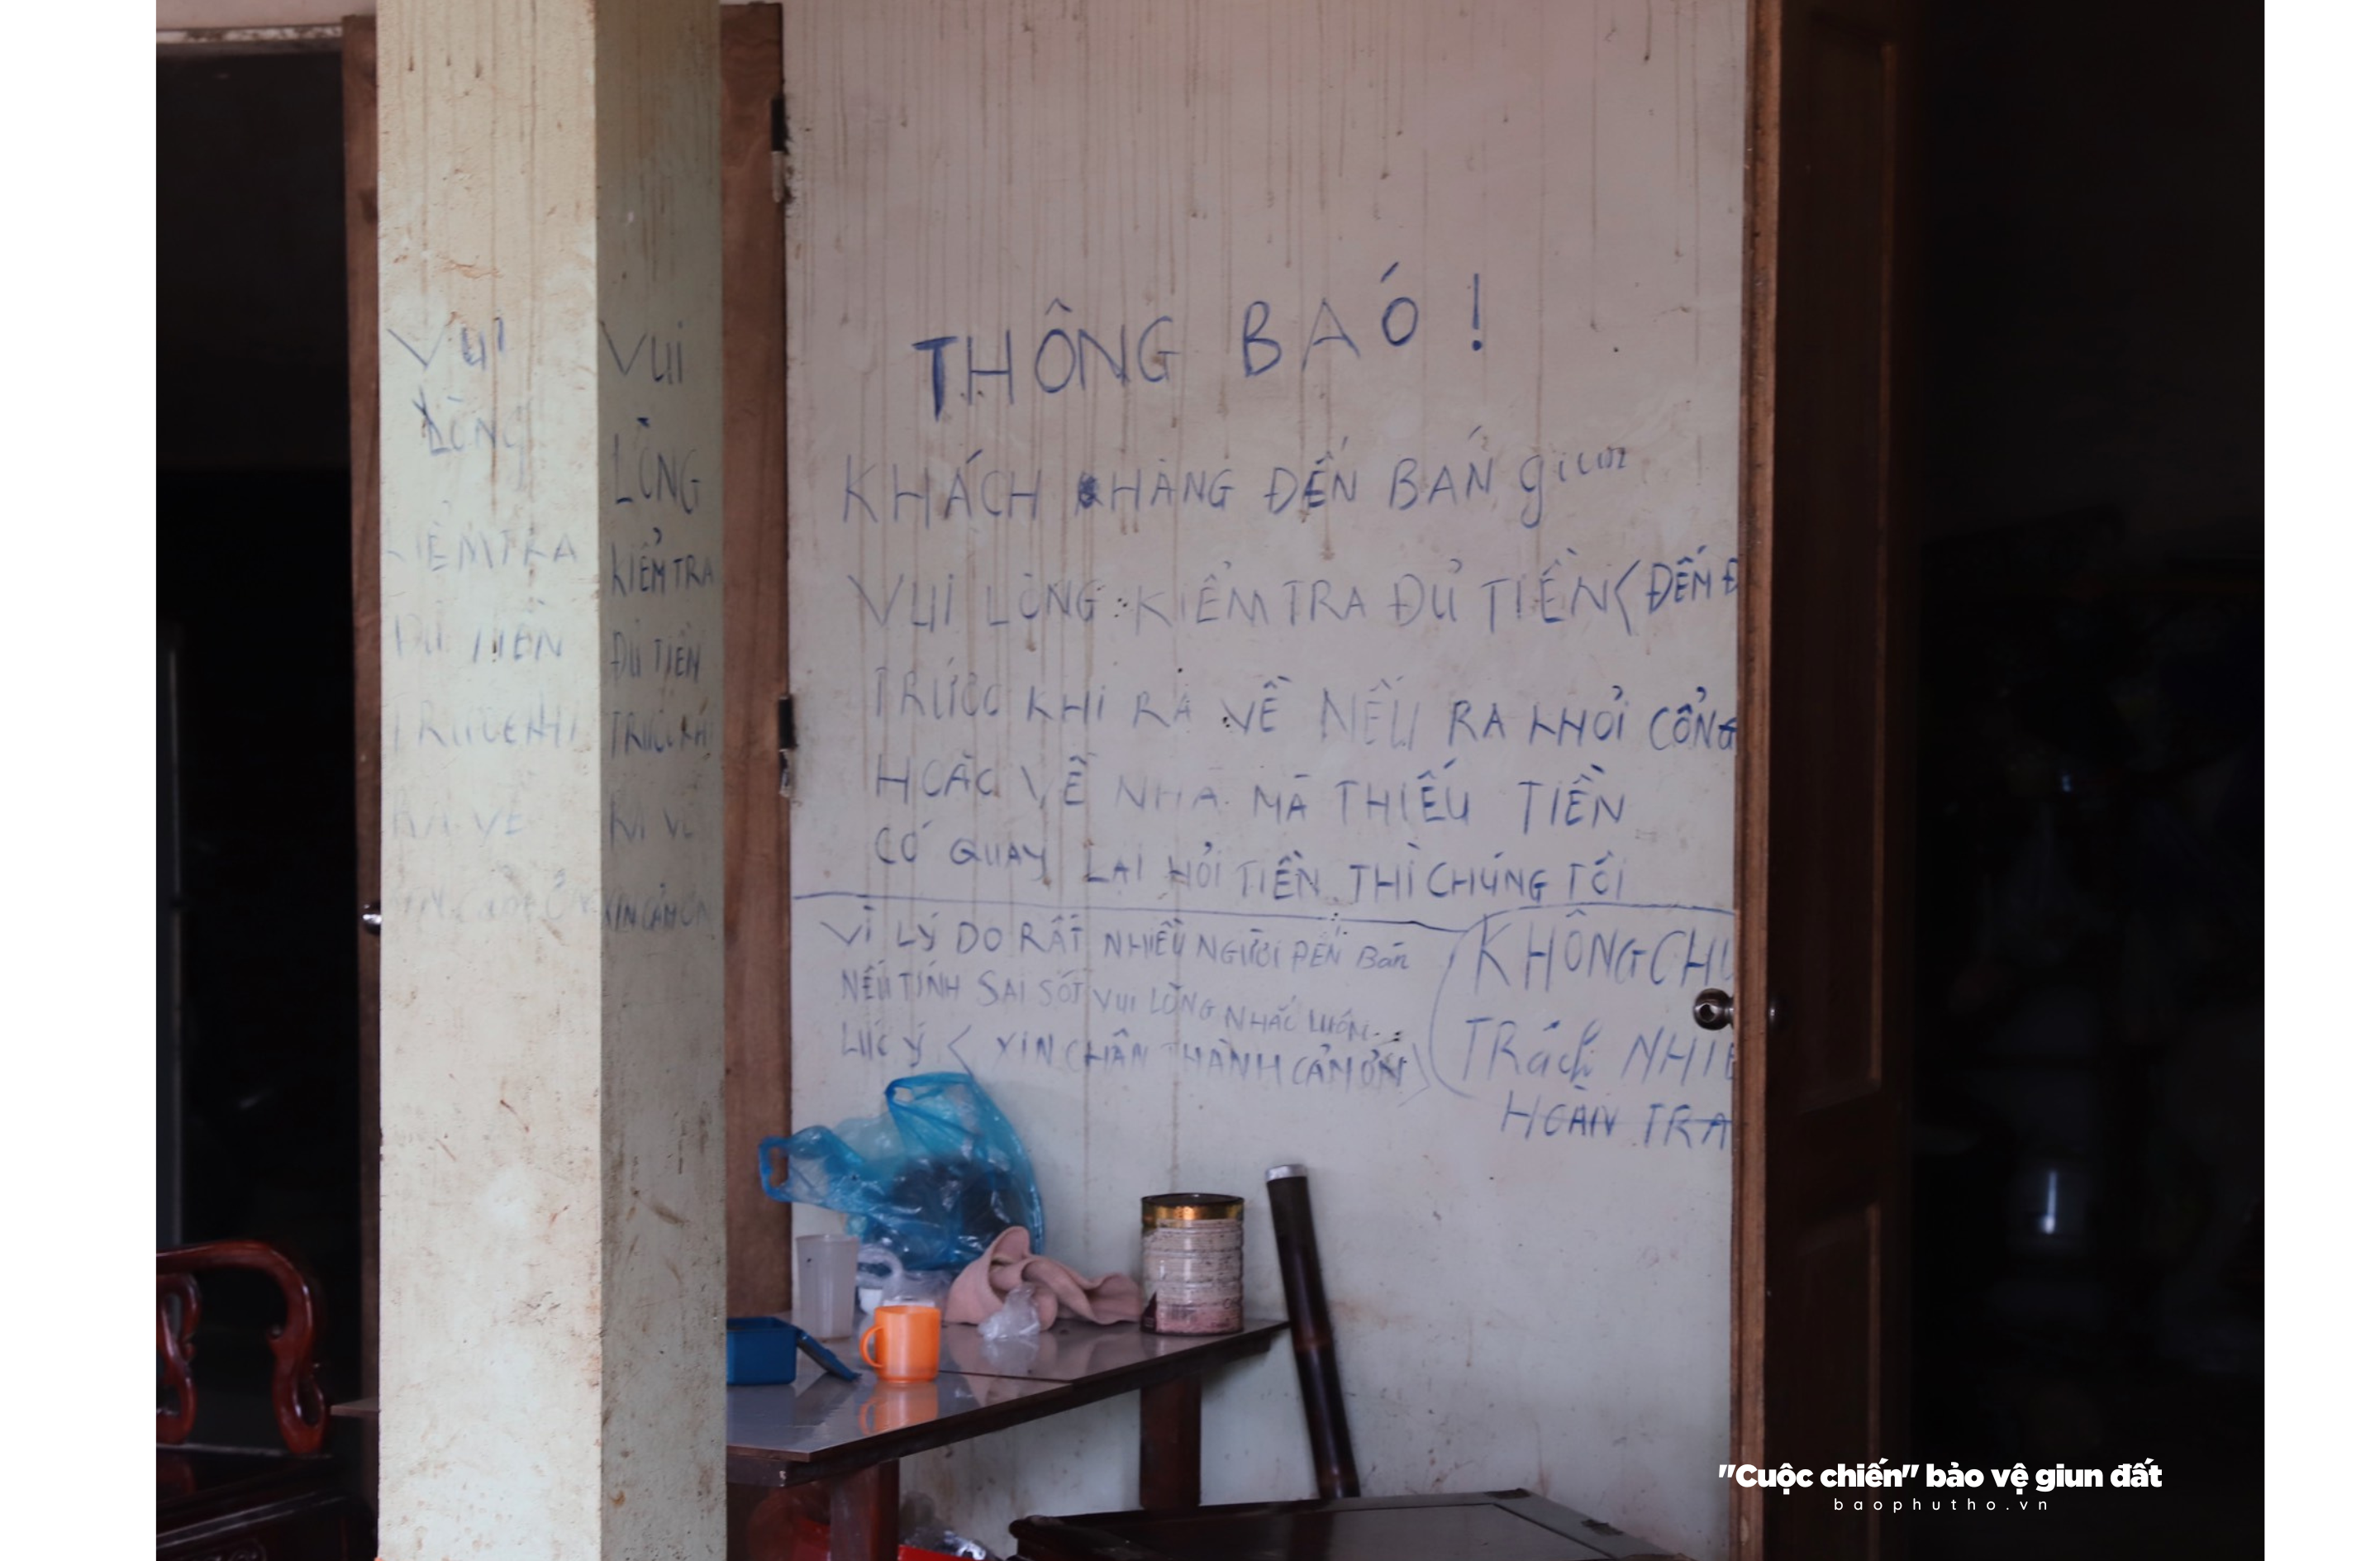 VUI
LÒNG
KIỂM TRA
ĐỦ TIỀN
TRƯỚC KHI
RA VỀ
XIN CẢM ƠN
VUI
LÒNG
KIỂM TRA
ĐỦ TIỀN
TRƯỚC KHI
RA VỀ
XIN CẢM ƠN
THÔNG BAÓ !
KHÁCH HÀNG ĐẾN BAŃ giun
VUI LÒNG KIỂM TRA ĐỦ TIỀN < ĐẾM Đ
TRƯỚC KHI RA VỀ NẾU RA KHỎI CỔNG
HOẶC VỀ NHÀ MÀ THIẾU TIỀN
CÓ QUAY LẠI HỎI TIỀN THÌ CHÚNG TÔI
KHÔNG CHỊ
TRách NHIỆ
HOÀN TRA
VÌ LÝ DO RẤT NHIỀU NGƯỜI ĐẾN Bán
NẾU TÍNH SAI SÓT VUI LÒNG NHẮC LUÔN
LƯU Ý < XIN CHÂN THÀNH CẢM ƠN >
"Cuộc chiến" bảo vệ giun đất
baophutho.vn